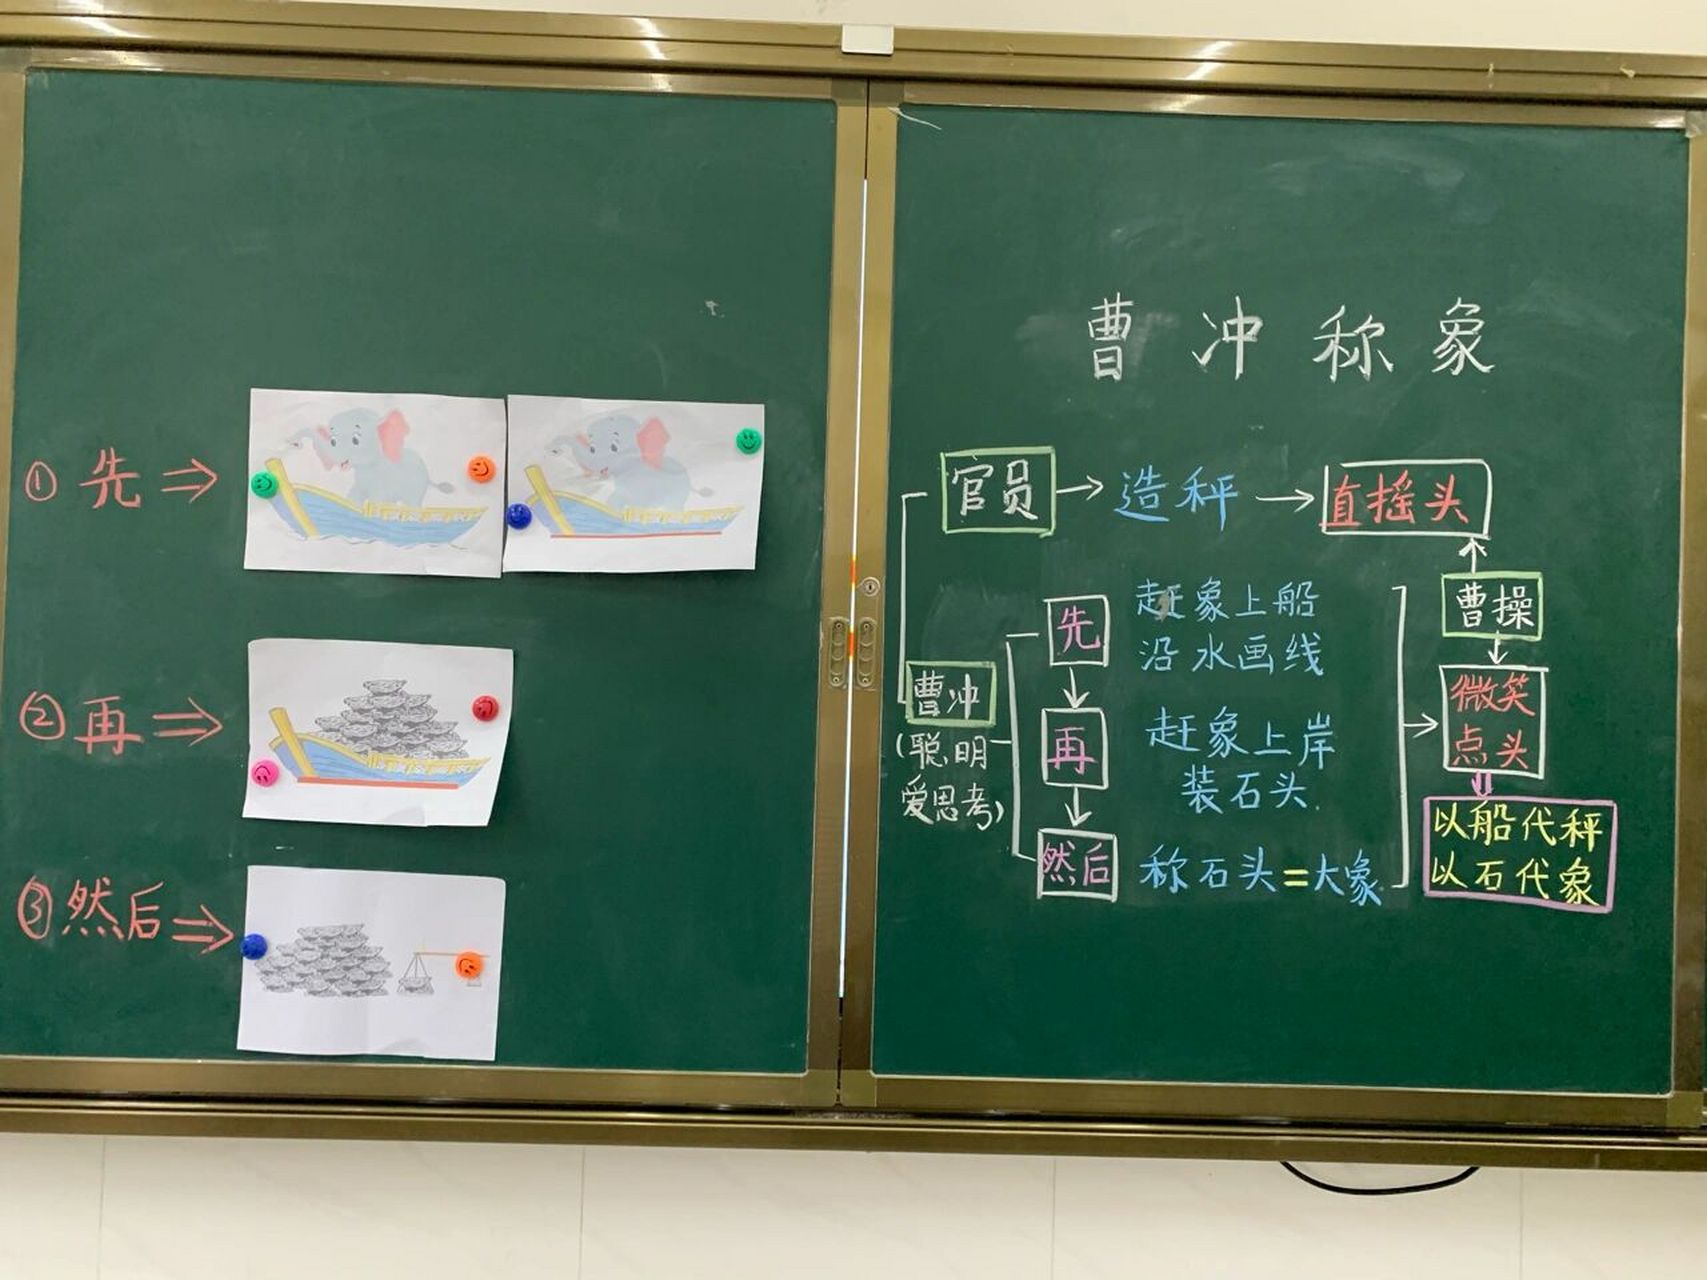 ① 先 ⇒
② 再 ⇒
③ 然后 ⇒
曹冲称象
官员 → 造秤 → 直摇头
曹操
曹冲
(聪明
爱思考)
先
赶象上船
沿水画线
再
赶象上岸
装石头
然后
称石头=大象
微笑
点头
以船代秤
以石代象